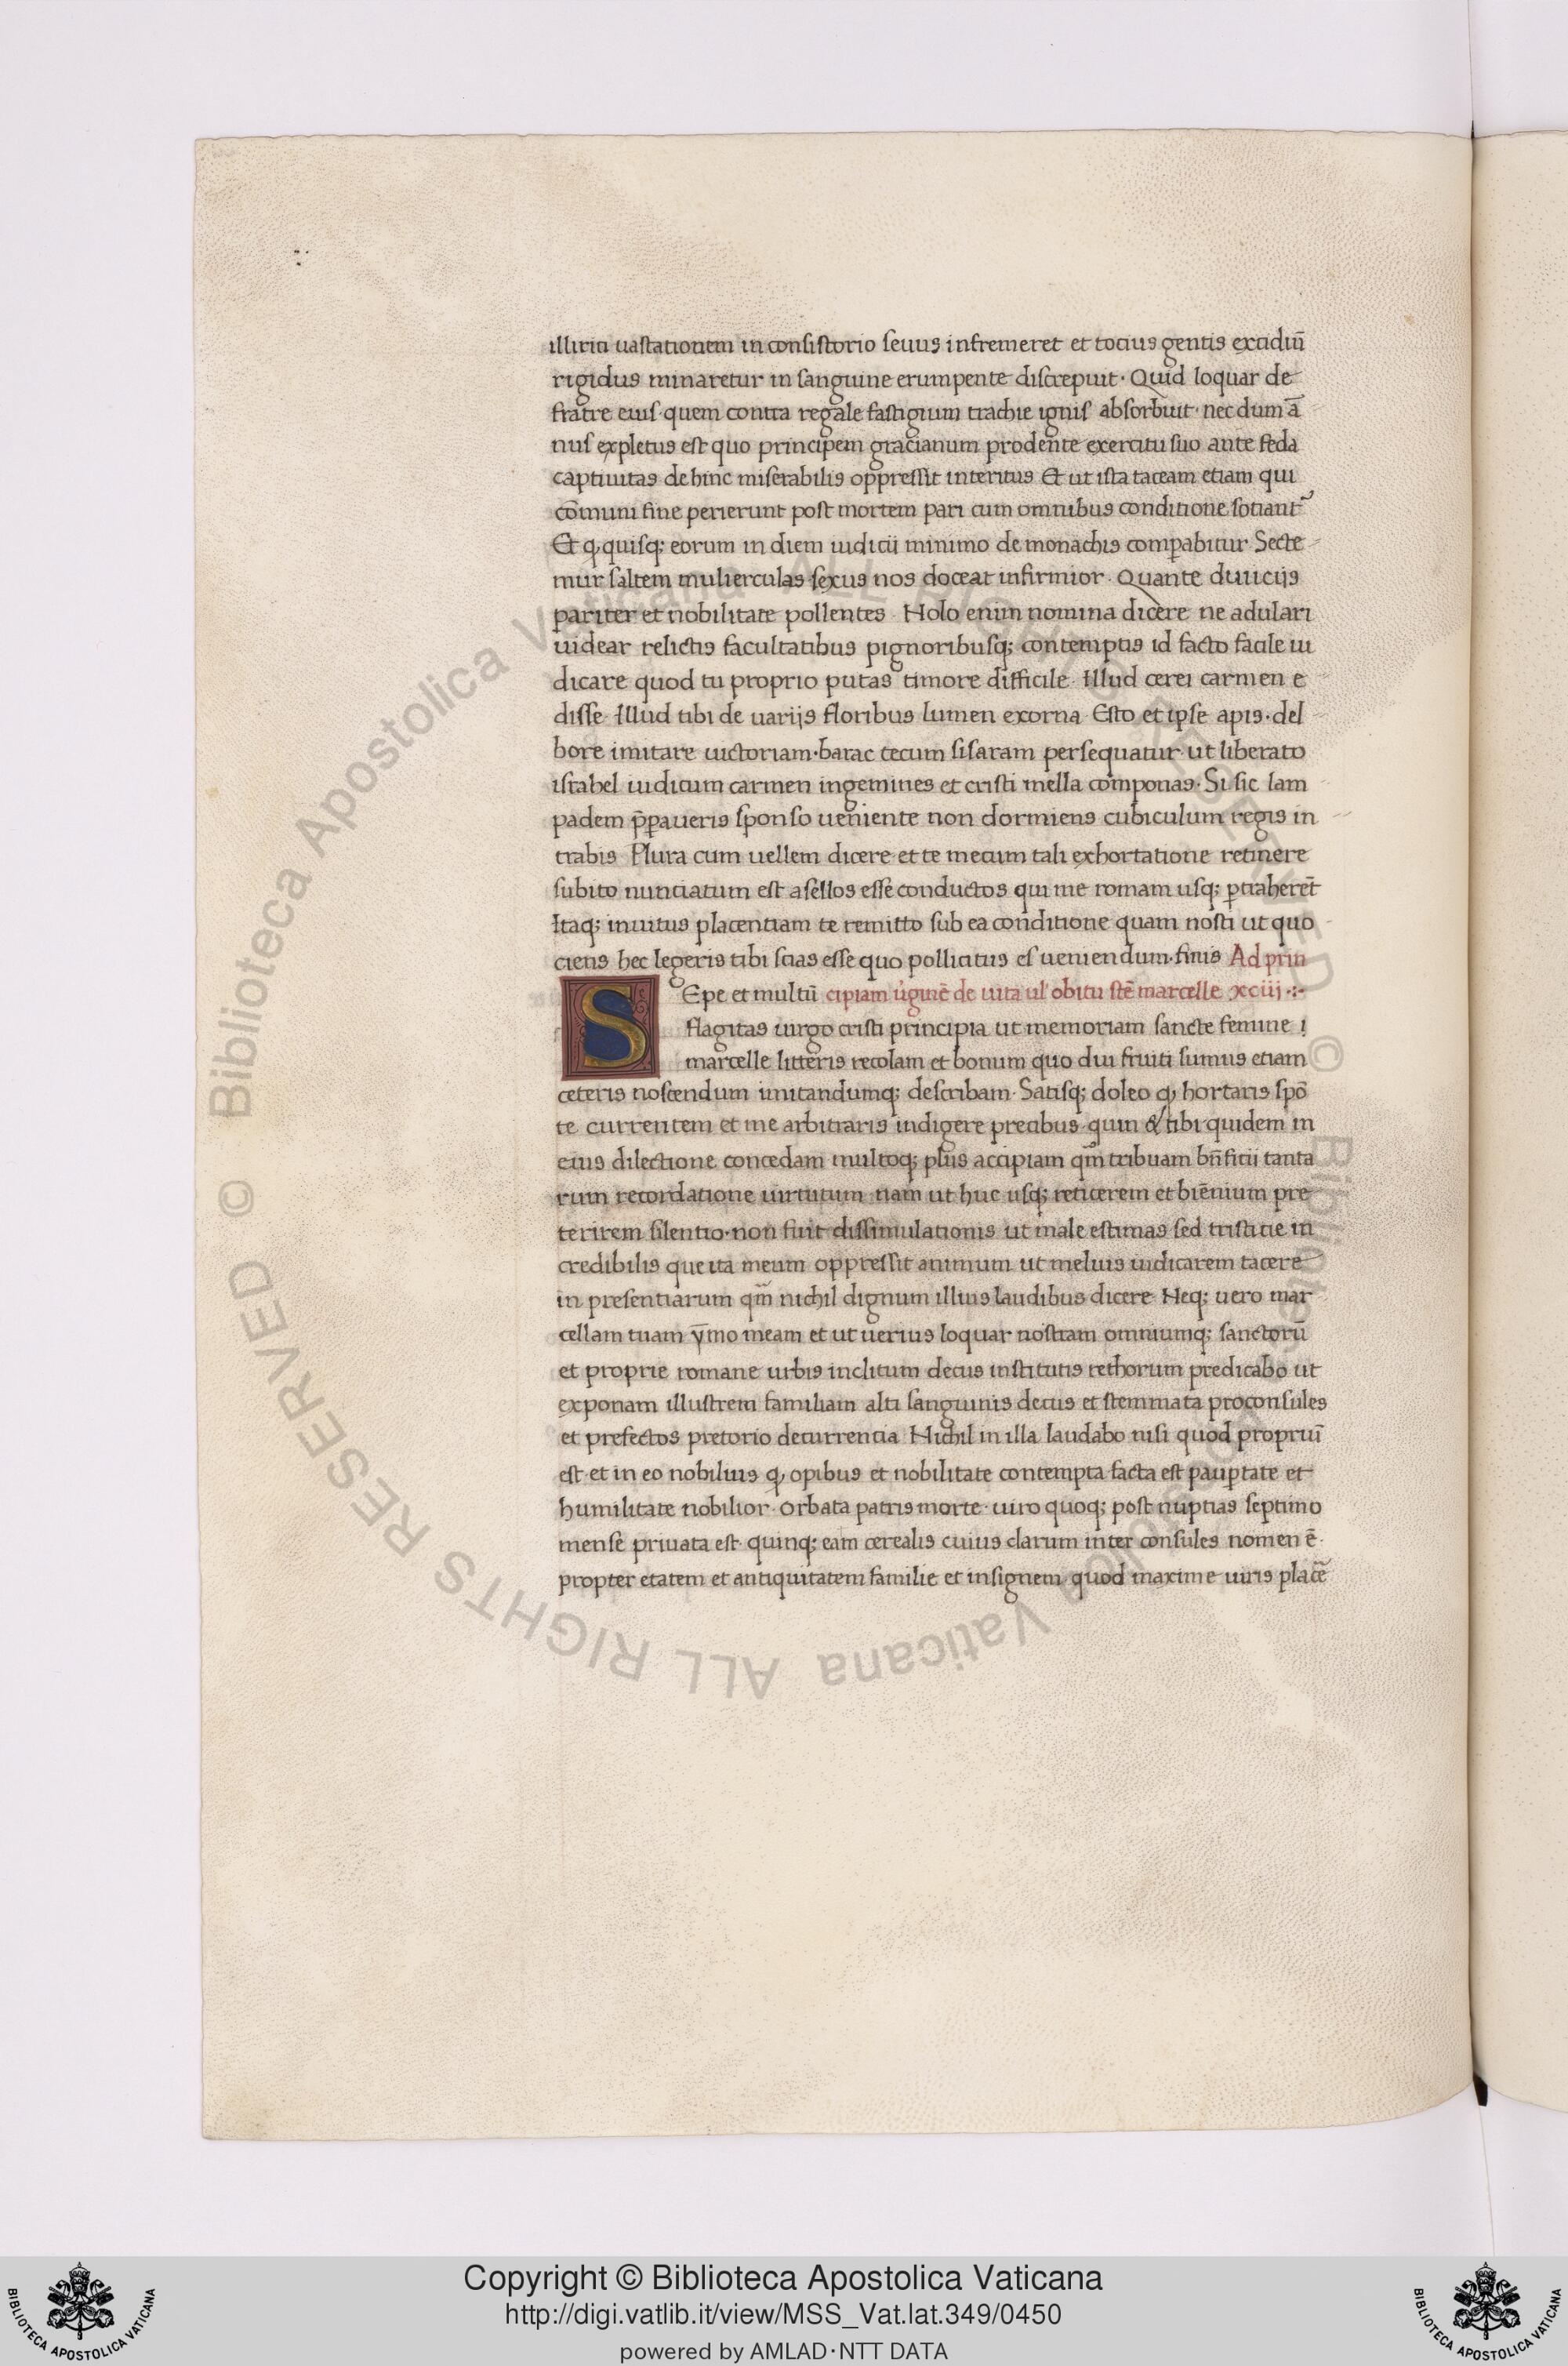 illirici uastationem in consistorio seuus infremeret et tocius gentis excidiū
rigidus minaretur in sanguine erumpente discrepuit · Quid loquar de
fratre eius · quem contra regale fastigium trachie ignis absorbuit · nec dum ā
nus expletus est quo principem gracianum prodente exercitu suo ante feda
captiuitas dehinc miserabilis oppressit interitus Et ut ista taceam etiam qui
cōmuni fine perierunt post mortem pari cum omnibus conditione sotiant᷑
Et ꝙ quisq; eorum in diem iudicii minimo de monachis comꝑabitur Secte
mur saltem mulierculas sexus nos doceat infirmior · Quante diuicijs
pariter et nobilitate pollentes · Nolo enim nomina dicere ne adulari
uidear relictis facultatibus pignoribusq; contemptis id facto facile iu
dicare quod tu proprio putas timore difficile · Illud cerei carmen e
disse · Illud tibi de uarijs floribus lumen exorna · Esto et ipse apis · del
bore imitare uictoriam · barac tecum sisaram persequatur · ut liberato
israhel iudicum carmen ingemines et cristi mella componas · Si sic lam
padem p̄ꝑaueris sponso ueniente non dormiens cubiculum regis in
trabis Plura cum uellem dicere et te mecum tali exhortatione retinere
subito nunciatum est asellos esse conductos qui me romam usq; ꝑtraherēt
Itaq; inuitus placentiam te remitto sub ea conditione quam nosti ut quo
ciens hec legeris tibi scias esse quo pollicitus es ueniendum · finis Ad prin
SEpe et multū cipiam u̓ginē de uita ul' obitu stē marcelle xciij ·:·
flagitas uirgo cristi principia ut memoriam sancte femine
marcelle litteris recolam et bonum quo diu fruiti sumus etiam
ceteris noscendum imitandumq; describam · Satisq; doleo ꝙ hortaris spō
te currentem et me arbitraris indigere precibus quin & tibi quidem in
eius dilectione concedam multoq; plus accipiam qm̄ tribuam bn̄ficii tanta
rum recordatione uirtutum nam ut huc usq; reticerem et biēnium pre
terirem silentio · non fuit dissimulationis ut male estimas sed tristicie in
credibilis que ita meum oppressit animum ut melius iudicarem tacere
in presentiarum qm̄ nichil dignum illius laudibus dicere Neq; uero mar
cellam tuam ȳmo meam et ut uerius loquar nostram omniumq; sanctorū
et proprie romane urbis inclitum decus institutis rethorum predicabo ut
exponam illustrem familiam alti sanguinis decus et stemmata proconsules
et prefectos pretorio decurrencia Nichil in illa laudabo nisi quod propriū
est et in eo nobilius ꝙ opibus et nobilitate contempta facta est pauꝑtate et
humilitate nobilior · Orbata patris morte · uiro quoq; post nuptias septimo
mense priuata est · quinq; eam cerealis cuius clarum inter consules nomen ē ·
propter etatem et antiquitatem familie et insignem quod maxime uiris placē
Copyright © Biblioteca Apostolica Vaticana
http://digi.vatlib.it/view/MSS_Vat.lat.349/0450
powered by AMLAD·NTT DATA
BIBLIOTECA APOSTOLICA VATICANA
BIBLIOTECA APOSTOLICA VATICANA
© Biblioteca Apostolica Vaticana ALL RIGHTS RESERVED © Biblioteca Apostolica Vaticana ALL RIGHTS RESERVED